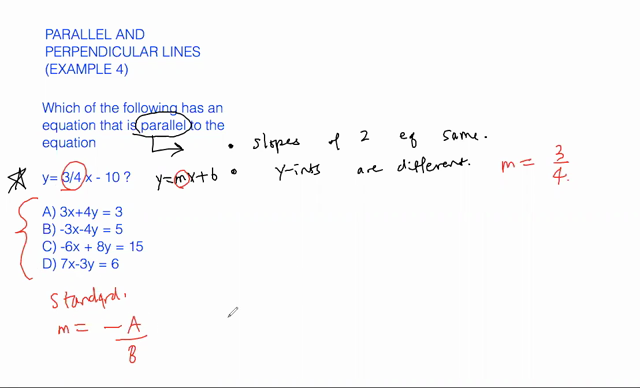 PARALLEL AND
PERPENDICULAR LINES
(EXAMPLE 4)
Which of the following has an
equation that is parallel to the
equation
y= 3/4 x - 10 ?
A) 3x+4y = 3
B) -3x-4y = 5
C) -6x + 8y = 15
D) 7x-3y = 6
y=mx+b
• slopes of 2 eq same.
• y-ints are different.
m = 3/4.
Standard.
m = -A/B